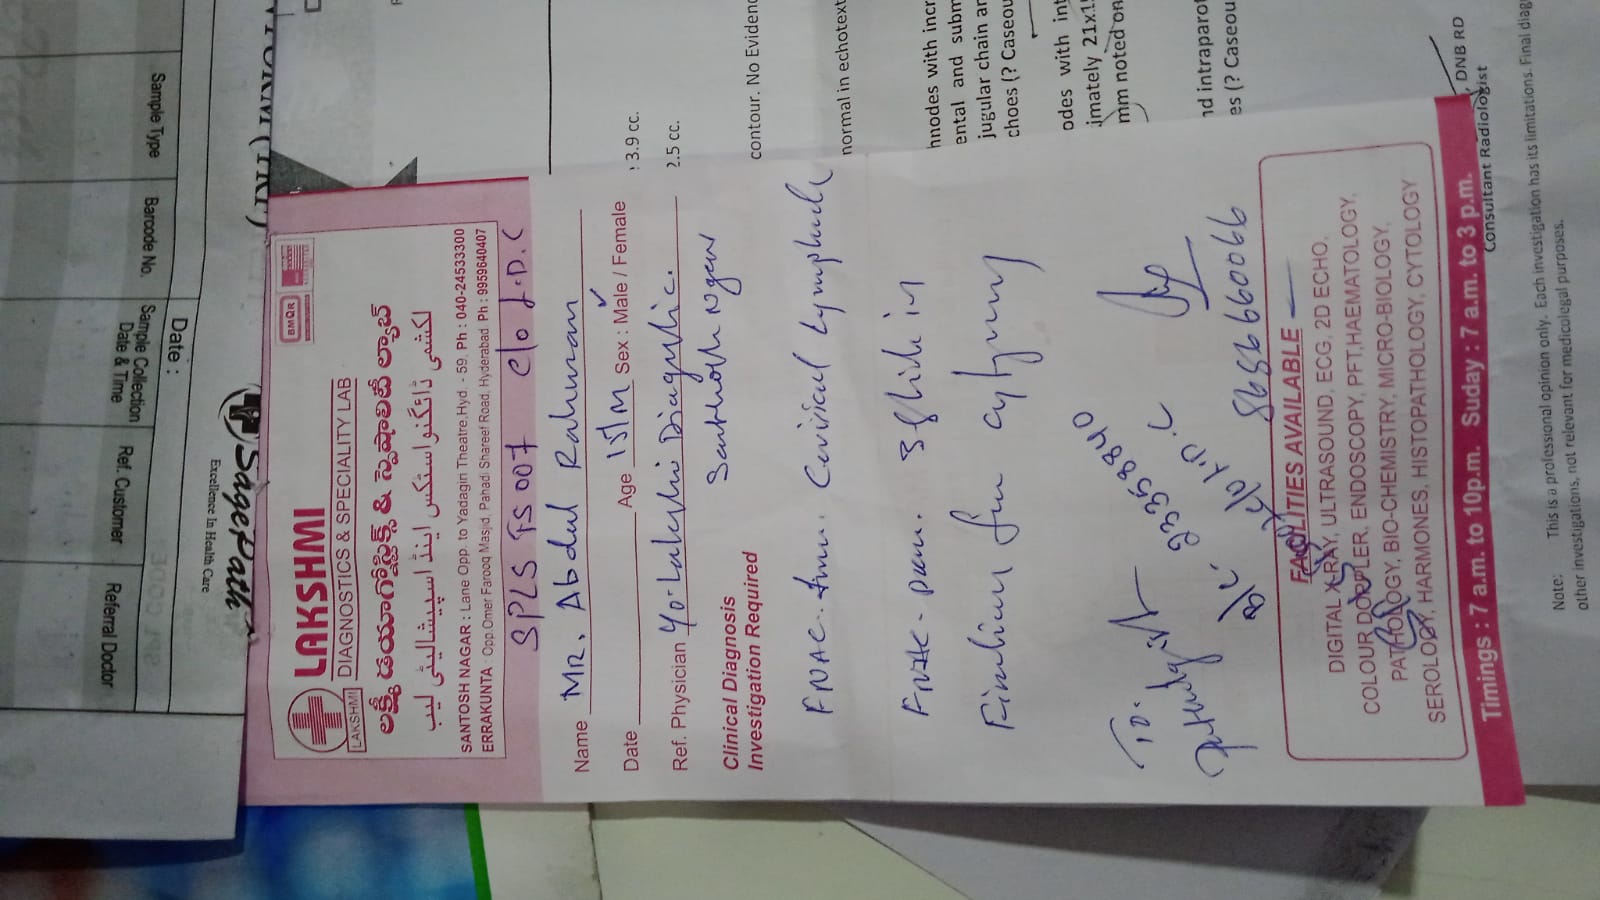 LAKSHMI
BMQR
LAKSHMI
DIAGNOSTICS & SPECIALITY LAB
లక్ష్మీ డయాగ్నోస్టిక్స్ & స్పెషాలిటీ ల్యాబ్
لکشمی ڈائگنواسٹکس اینڈ اسپیشالیٹی لیب
SANTOSH NAGAR : Lane Opp. to Yadagiri Theatre,Hyd. - 59, Ph : 040-24533300
ERRAKUNTA : Opp.Omer Farooq Masjid, Pahadi Shareef Road, Hyderabad. Ph : 9959640407
SPLS TS 007 c/o L.D.C
Name MR. Abdul Rahman
Date Age 15/M Sex : Male / Female
Ref. Physician Lakshmi Diagnostic
Santhosh Nagar
Clinical Diagnosis
Investigation Required
FNAC. from. Cervical Lymphnode
FNAC - Done. 3 Slides in
for cytology
To.
Pathologist 23358840
c/o L.D.C
8686660066
FACILITIES AVAILABLE
DIGITAL X-RAY, ULTRASOUND, ECG, 2D ECHO,
COLOUR DOPLER, ENDOSCOPY, PFT,HAEMATOLOGY,
PATHOLOGY, BIO-CHEMISTRY, MICRO-BIOLOGY,
SEROLOGY, HARMONES, HISTOPATHOLOGY, CYTOLOGY
Timings : 7 a.m. to 10p.m. Suday : 7 a.m. to 3 p.m.
Sample Type
Barcode No.
Sample Collection
Date & Time
Ref. Customer
Referral Doctor
Date :
SagePath
Excellence In Health Care
: 3.9 cc.
2.5 cc.
contour. No Evidenc
normal in echotext
hnodes with incr
ental and subm
jugular chain an
choes (? Caseou
odes with int
imately 21x1
mm noted on
nd intraparot
es (? Caseou
DNB RD
Consultant Radiologist
Note: This is a professional opinion only. Each investigation has its limitations. Final diag
other investigations, not relevant for medicolegal purposes.